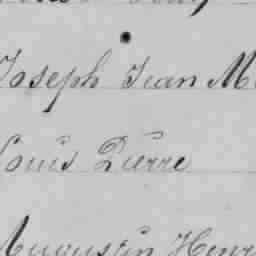 Joseph Jean M
Louis Pierre
Augustin Henr